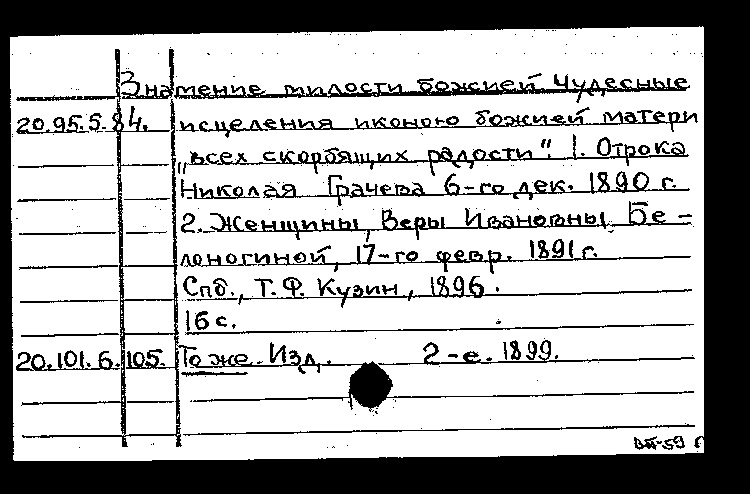 Знамение милости божией. Чудесные
20.95.5.84. исцеления иконою божией матери
„всех скорбящих радости“. 1. Отрока
Николая Грачева 6-го дек. 1890 г.
2. Женщины, Веры Ивановны, Бе-
лоногиной, 17-го февр. 1891 г.
Спб., Т. Ф. Кузин, 1896.
16 с.
20.101.6.105. То же. Изд. 2-е. 1899.